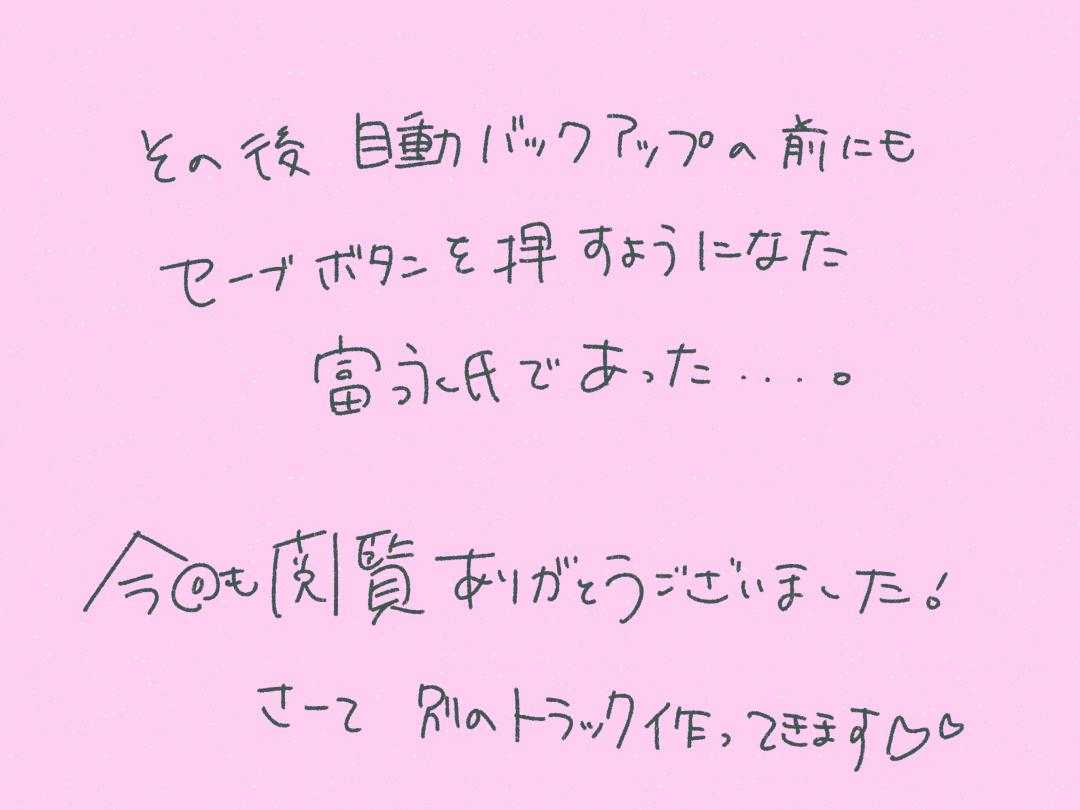 その後 自動バックアップの前にも
セーブボタンを押すようになた
富永氏であった....。
今@も閲覧ありがとうございました!
さーて 別のトラック作ってきます♡♡